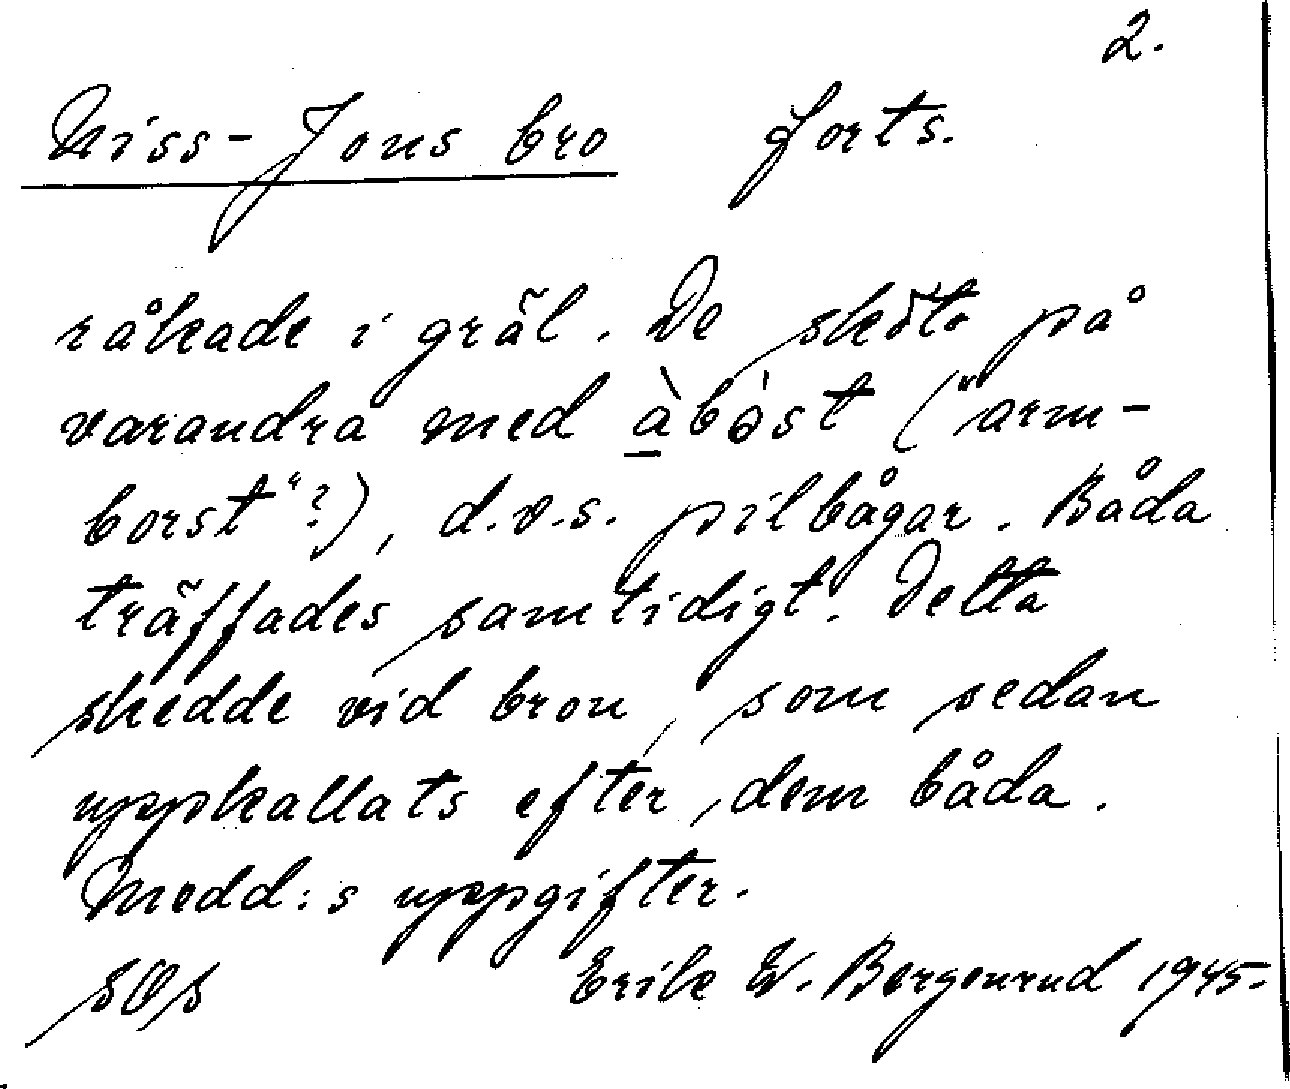 2.
Niss-Jons bro forts.
råkade i gräl. De sköto på
varandra med àbòst ("arm-
borst"?), d.v.s. pilbågar. Båda
träffades samtidigt. Detta
skedde vid bron, som sedan
uppkallats efter dem båda.
Medd:s uppgifter.
SOs Erik W. Bergenrud 1945.